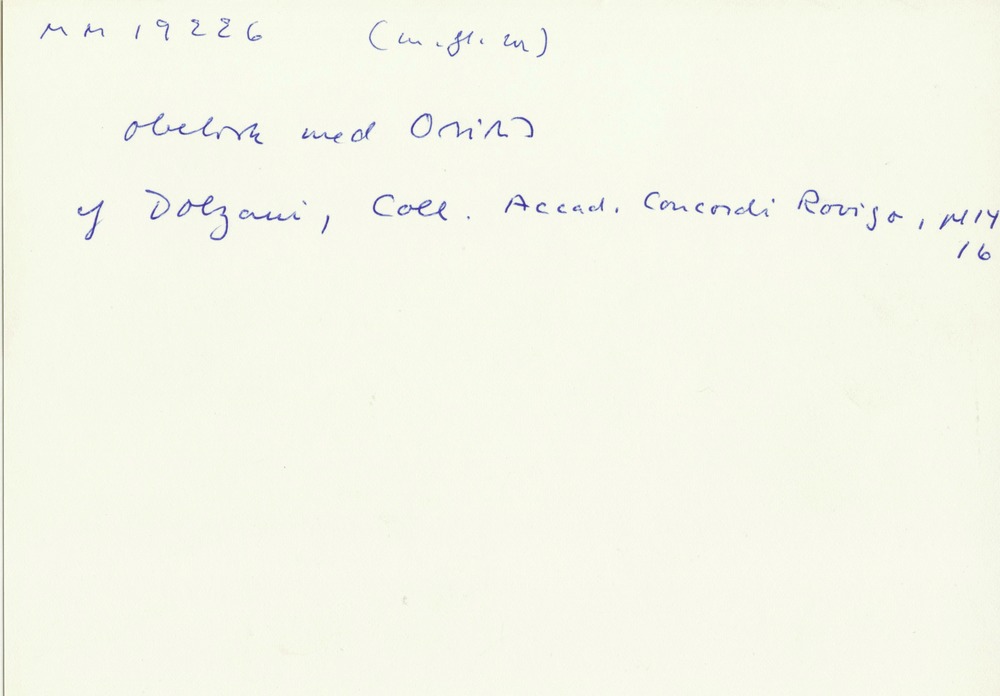 MM 19226 (m.gl.m)
obelisk med Osiris
cf Dolzani, Coll. Accad. Concordi Rovigo, M14
16